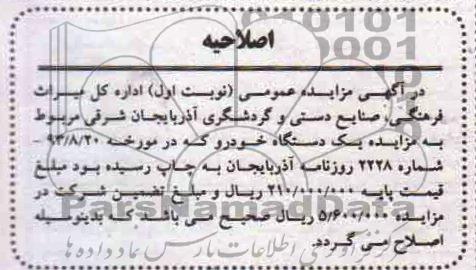 اصلاحیه
در آگهی مزایده عمومی (نوبت اول) اداره کل میراث
فرهنگی، صنایع دستی و گردشگری آذربایجان شرقی مربوط
به مزایده یک دستگاه خودرو که در مورخه ۹۳/۸/۲۰ -
شماره ۲۲۲۸ روزنامه آذربایجان به چاپ رسیده بود مبلغ
قیمت پایه ۲۱۰/۱۰۰/۰۰۰ ریال و مبلغ تضمین شرکت در
مزایده ۵/۶۰۰/۰۰۰ ریال صحیح می باشد که بدینوسیله
اصلاح می گردد.
ParsNamadData